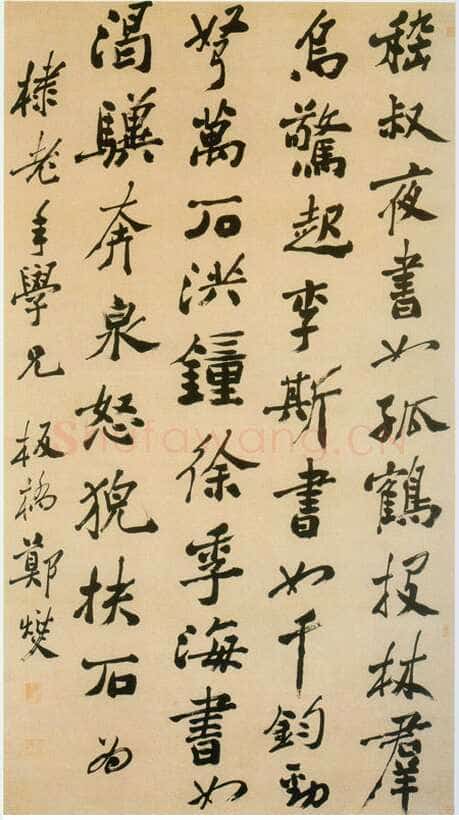 嵇叔夜書如孤鶴投林羣
烏驚起李斯書如千鈞勁
弩萬石洪鐘徐季海書如
渴驥奔泉怒猊抉石為
棣老年學兄 板橋鄭燮
Shufawang.CN